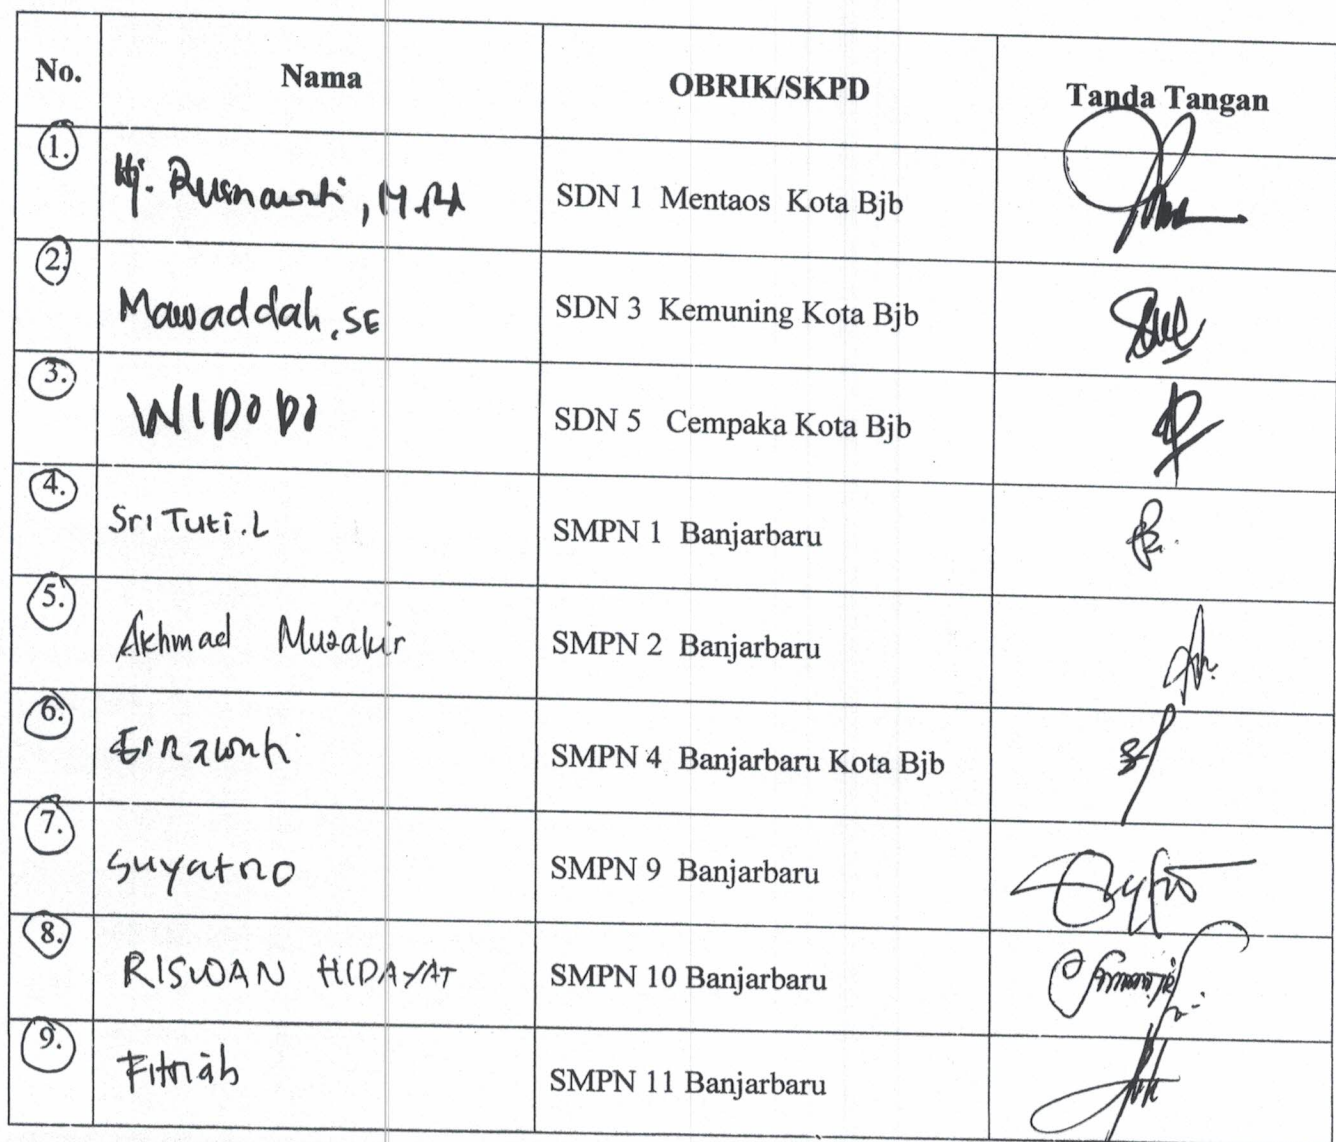 No. Nama OBRIK/SKPD Tanda Tangan
1. Hj. SDN 1 Mentaos Kota Bjb
2. Mawaddah, SE SDN 3 Kemuning Kota Bjb
3. WIDODO SDN 5 Cempaka Kota Bjb
4. Sri Tuti.L SMPN 1 Banjarbaru
5. Akhmad Muzakir SMPN 2 Banjarbaru
6. SMPN 4 Banjarbaru Kota Bjb
7. Suyatno SMPN 9 Banjarbaru
8. RISWAN HIDAYAT SMPN 10 Banjarbaru
9. Fitriah SMPN 11 Banjarbaru